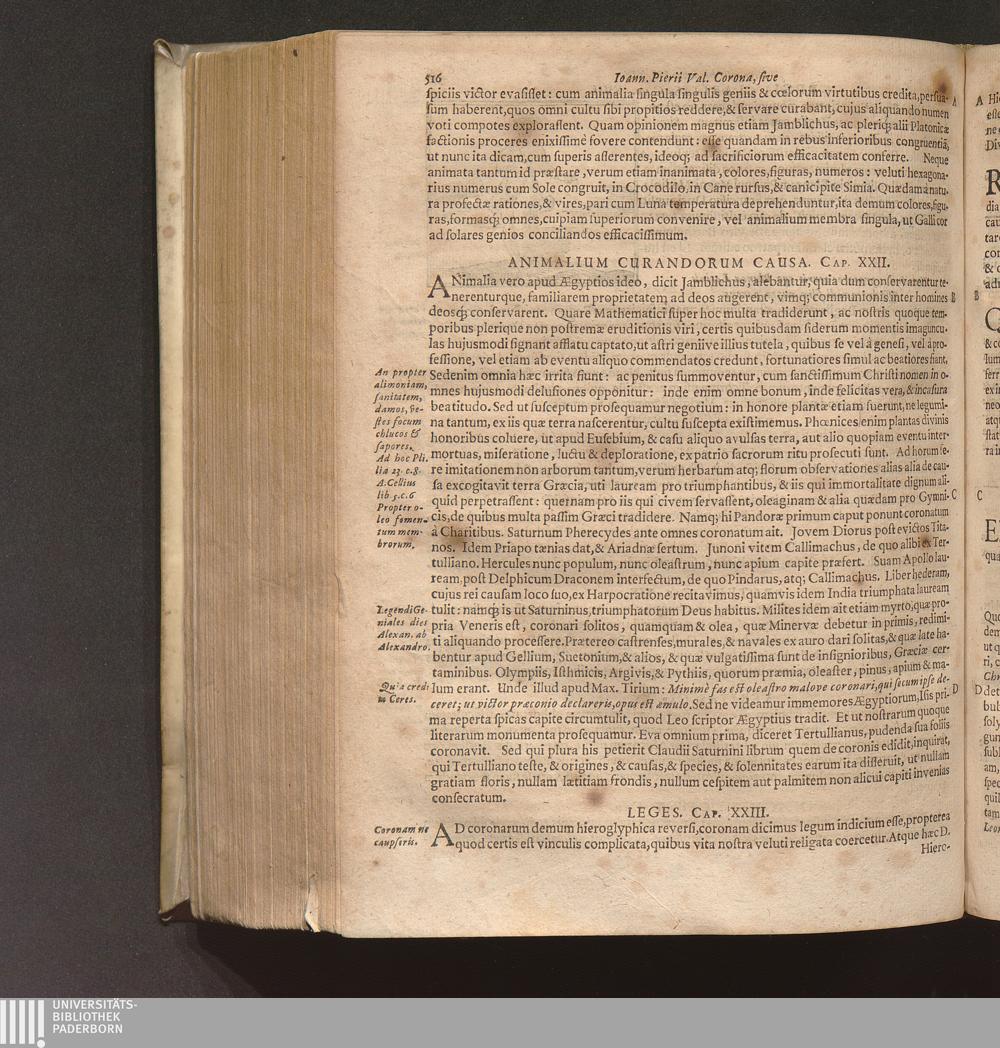 516
Ioann. Pierii Val. Corona, sive
spiciis victor evasisset: cum animalia singula singulis geniis & cœlorum virtutibus credita, persua-
sum haberent, quos omni cultu sibi propitios reddere, & servare curabant, cujus aliquando numen
voti compotes explorassent. Quam opinionem magnus etiam Jamblichus, ac pleriq; alii Platonicæ
factionis proceres enixissimè fovere contendunt: esse quandam in rebus inferioribus congruentiã,
ut nunc ita dicam, cum superis asserentes, ideoq; ad sacrificiorum efficacitatem conferre. Neque
animata tantum id præstare, verum etiam inanimata, colores, figuras, numeros: veluti hexagona-
rius numerus cum Sole congruit, in Crocodilo, in Cane rursus, & canicipite Simia. Quædam à natu-
ra profectæ rationes, & vires, pari cum Luna temperatura deprehenduntur, ita demum colores, figu-
ras, formasq; omnes, cuipiam superiorum convenire, vel animalium membra singula, ut Galli cor
ad solares genios conciliandos efficacissimum.
ANIMALIUM CURANDORUM CAUSA. CAP. XXII.
ANimalia vero apud Ægyptios ideo, dicit Jamblichus, alebantur, quia dum conservarentur te-
nerenturque, familiarem proprietatem ad deos augerent, vimq; communionis inter homines
deosq; conservarent. Quare Mathematici super hoc multa tradiderunt, ac nostris quoque tem-
poribus plerique non postremæ eruditionis viri, certis quibusdam siderum momentis imaguncu-
las hujusmodi signant afflatu captato, ut astri geniive illius tutela, quibus se vel à genesi, vel à pro-
fessione, vel etiam ab eventu aliquo commendatos credunt, fortunatiores simul ac beatiores fiant.
Sed enim omnia hæc irrita fiunt: ac penitus summoventur, cum sanctissimum Christi nomen in o-
mnes hujusmodi delusiones opponitur: inde enim omne bonum, inde felicitas vera, & incasura
beatitudo. Sed ut susceptum prosequamur negotium: in honore plantæ etiam fuerunt, ne legumi-
na tantum, ex iis quæ terra nascerentur, cultu suscepta existimemus. Phœnices enim plantas divinis
honoribus coluere, ut apud Eusebium, & casu aliquo avulsas terra, aut alio quopiam eventu inter-
mortuas, miseratione, luctu & deploratione, ex patrio sacrorum ritu prosecuti sunt. Ad horum fe-
re imitationem non arborum tantum, verum herbarum atq; florum observationes alias alia de cau-
sa excogitavit terra Græcia, uti lauream pro triumphantibus, & iis qui immortalitate dignum ali-
quid perpetrassent: quernam pro iis qui civem servassent, oleaginam & alia quædam pro Gymni-
cis, de quibus multa passim Græci tradidere. Namq; hi Pandoræ primum caput ponunt coronatum
à Charitibus. Saturnum Pherecydes ante omnes coronatum ait. Jovem Diorus post evictos Tita-
nos. Idem Priapo tænias dat, & Ariadnæ sertum. Junoni vitem Callimachus, de quo alibi ex Ter-
tulliano. Hercules nunc populum, nunc oleastrum, nunc apium capite præfert. Suam Apollo lau-
ream post Delphicum Draconem interfectum, de quo Pindarus, atq; Callimachus. Liber hederam,
cujus rei causam loco suo, ex Harpocratione recitavimus, quamvis idem India triumphata lauream
tulit: namq; is ut Saturninus, triumphatorum Deus habitus. Milites idem ait etiam myrto, quæ pro-
pria Veneris est, coronari solitos, quamquam & olea, quæ Minervæ debetur in primis, redimi-
ti aliquando processere. Prætereo castrenses, murales, & navales ex auro dari solitas, & quæ late ha-
bentur apud Gellium, Suetonium, & alios, & quæ vulgatissima sunt de insignioribus, Græciæ cer-
taminibus. Olympiis, Isthmicis, Argivis, & Pythiis, quorum præmia, oleaster, pinus, apium & ma-
lum erant. Unde illud apud Max. Tirium: Minimè fas est oleastro malove coronari, qui secum ipse de-
ceret; ut victor præconio declareris, opus est æmulo. Sed ne videamur immemores Ægyptiorum, Isis pri-
ma reperta spicas capite circumtulit, quod Leo scriptor Ægyptius tradit. Et ut nostrarum quoque
literarum monumenta prosequamur. Eva omnium prima, diceret Tertullianus, pudenda sua foliis
coronavit. Sed qui plura his petierit Claudii Saturnini librum quem de coronis edidit, inquirat,
qui Tertulliano teste, & origines, & causas, & species, & solennitates earum ita disseruit, ut nullam
gratiam floris, nullam lætitiam frondis, nullum cespitem aut palmitem non alicui capiti invenias
consecratum.
LEGES. CAP. XXIII.
AD coronarum demum hieroglyphica reversi, coronam dicimus legum indicium esse, propterea
quod certis est vinculis complicata, quibus vita nostra veluti religata coercetur. Atque hæc D.
Hiero-
An propter
alimoniam,
sanitatem,
damos, ve-
stes focum
chlucos &
sapores.
Ad hoc Pli.
lia 23. c. 8.
A. Cellius
lib 5. c. 6
Propter o-
leo fomen-
tum mem-
brorum.
Legendi Ge-
niales dies
Alexan. ab
Alexandro.
Quia credi
in Ceres.
Coronam ne
caupseris.
A
B
C
D
UNIVERSITÄTS-
BIBLIOTHEK
PADERBORN